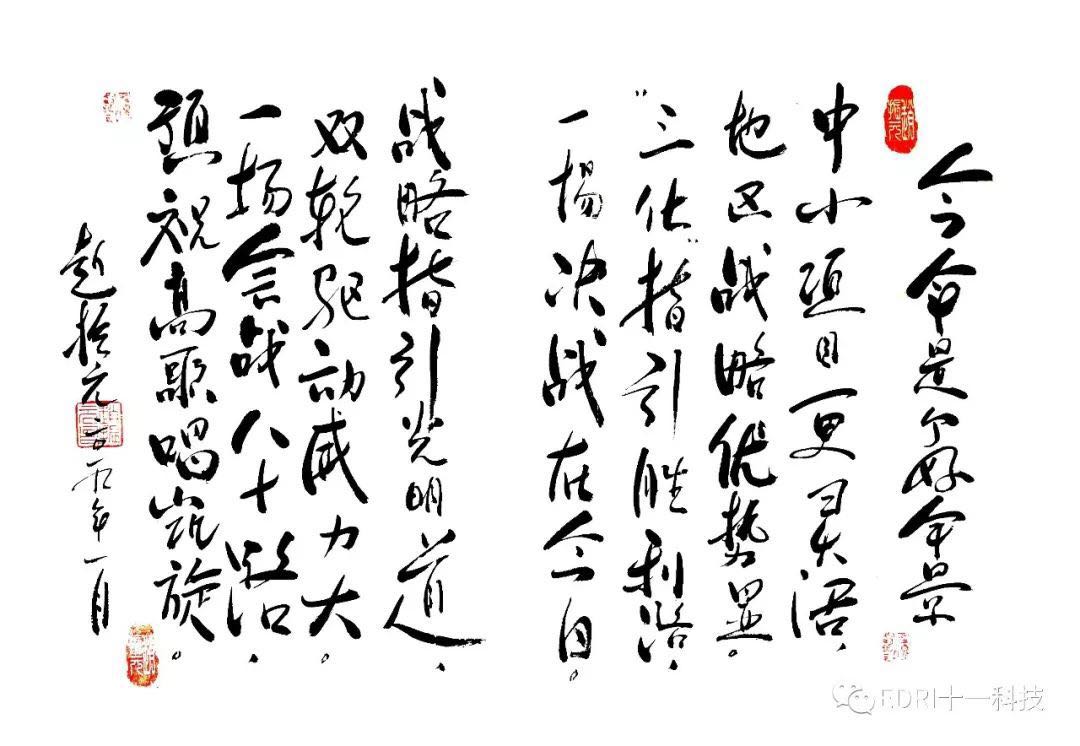 今年是个好年景
中小项目更灵活、
地区战略优势显。
“三化”指引胜利路、
一场决战在今日。
战略指引光明道、
双轮驱动威力大。
一场会战八十路、
预祝高歌唱凯旋。
赵振元 二〇一九年一月
EDRI十一科技